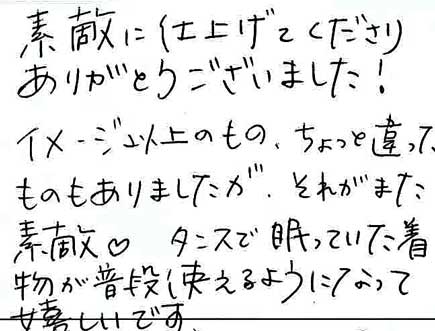 素敵に仕上げてくださり
ありがとうございました！
イメージ以上のもの、ちょっと違った
ものもありましたが、それがまた
素敵♡ タンスで眠っていた着
物が普段使えるようになって
嬉しいです